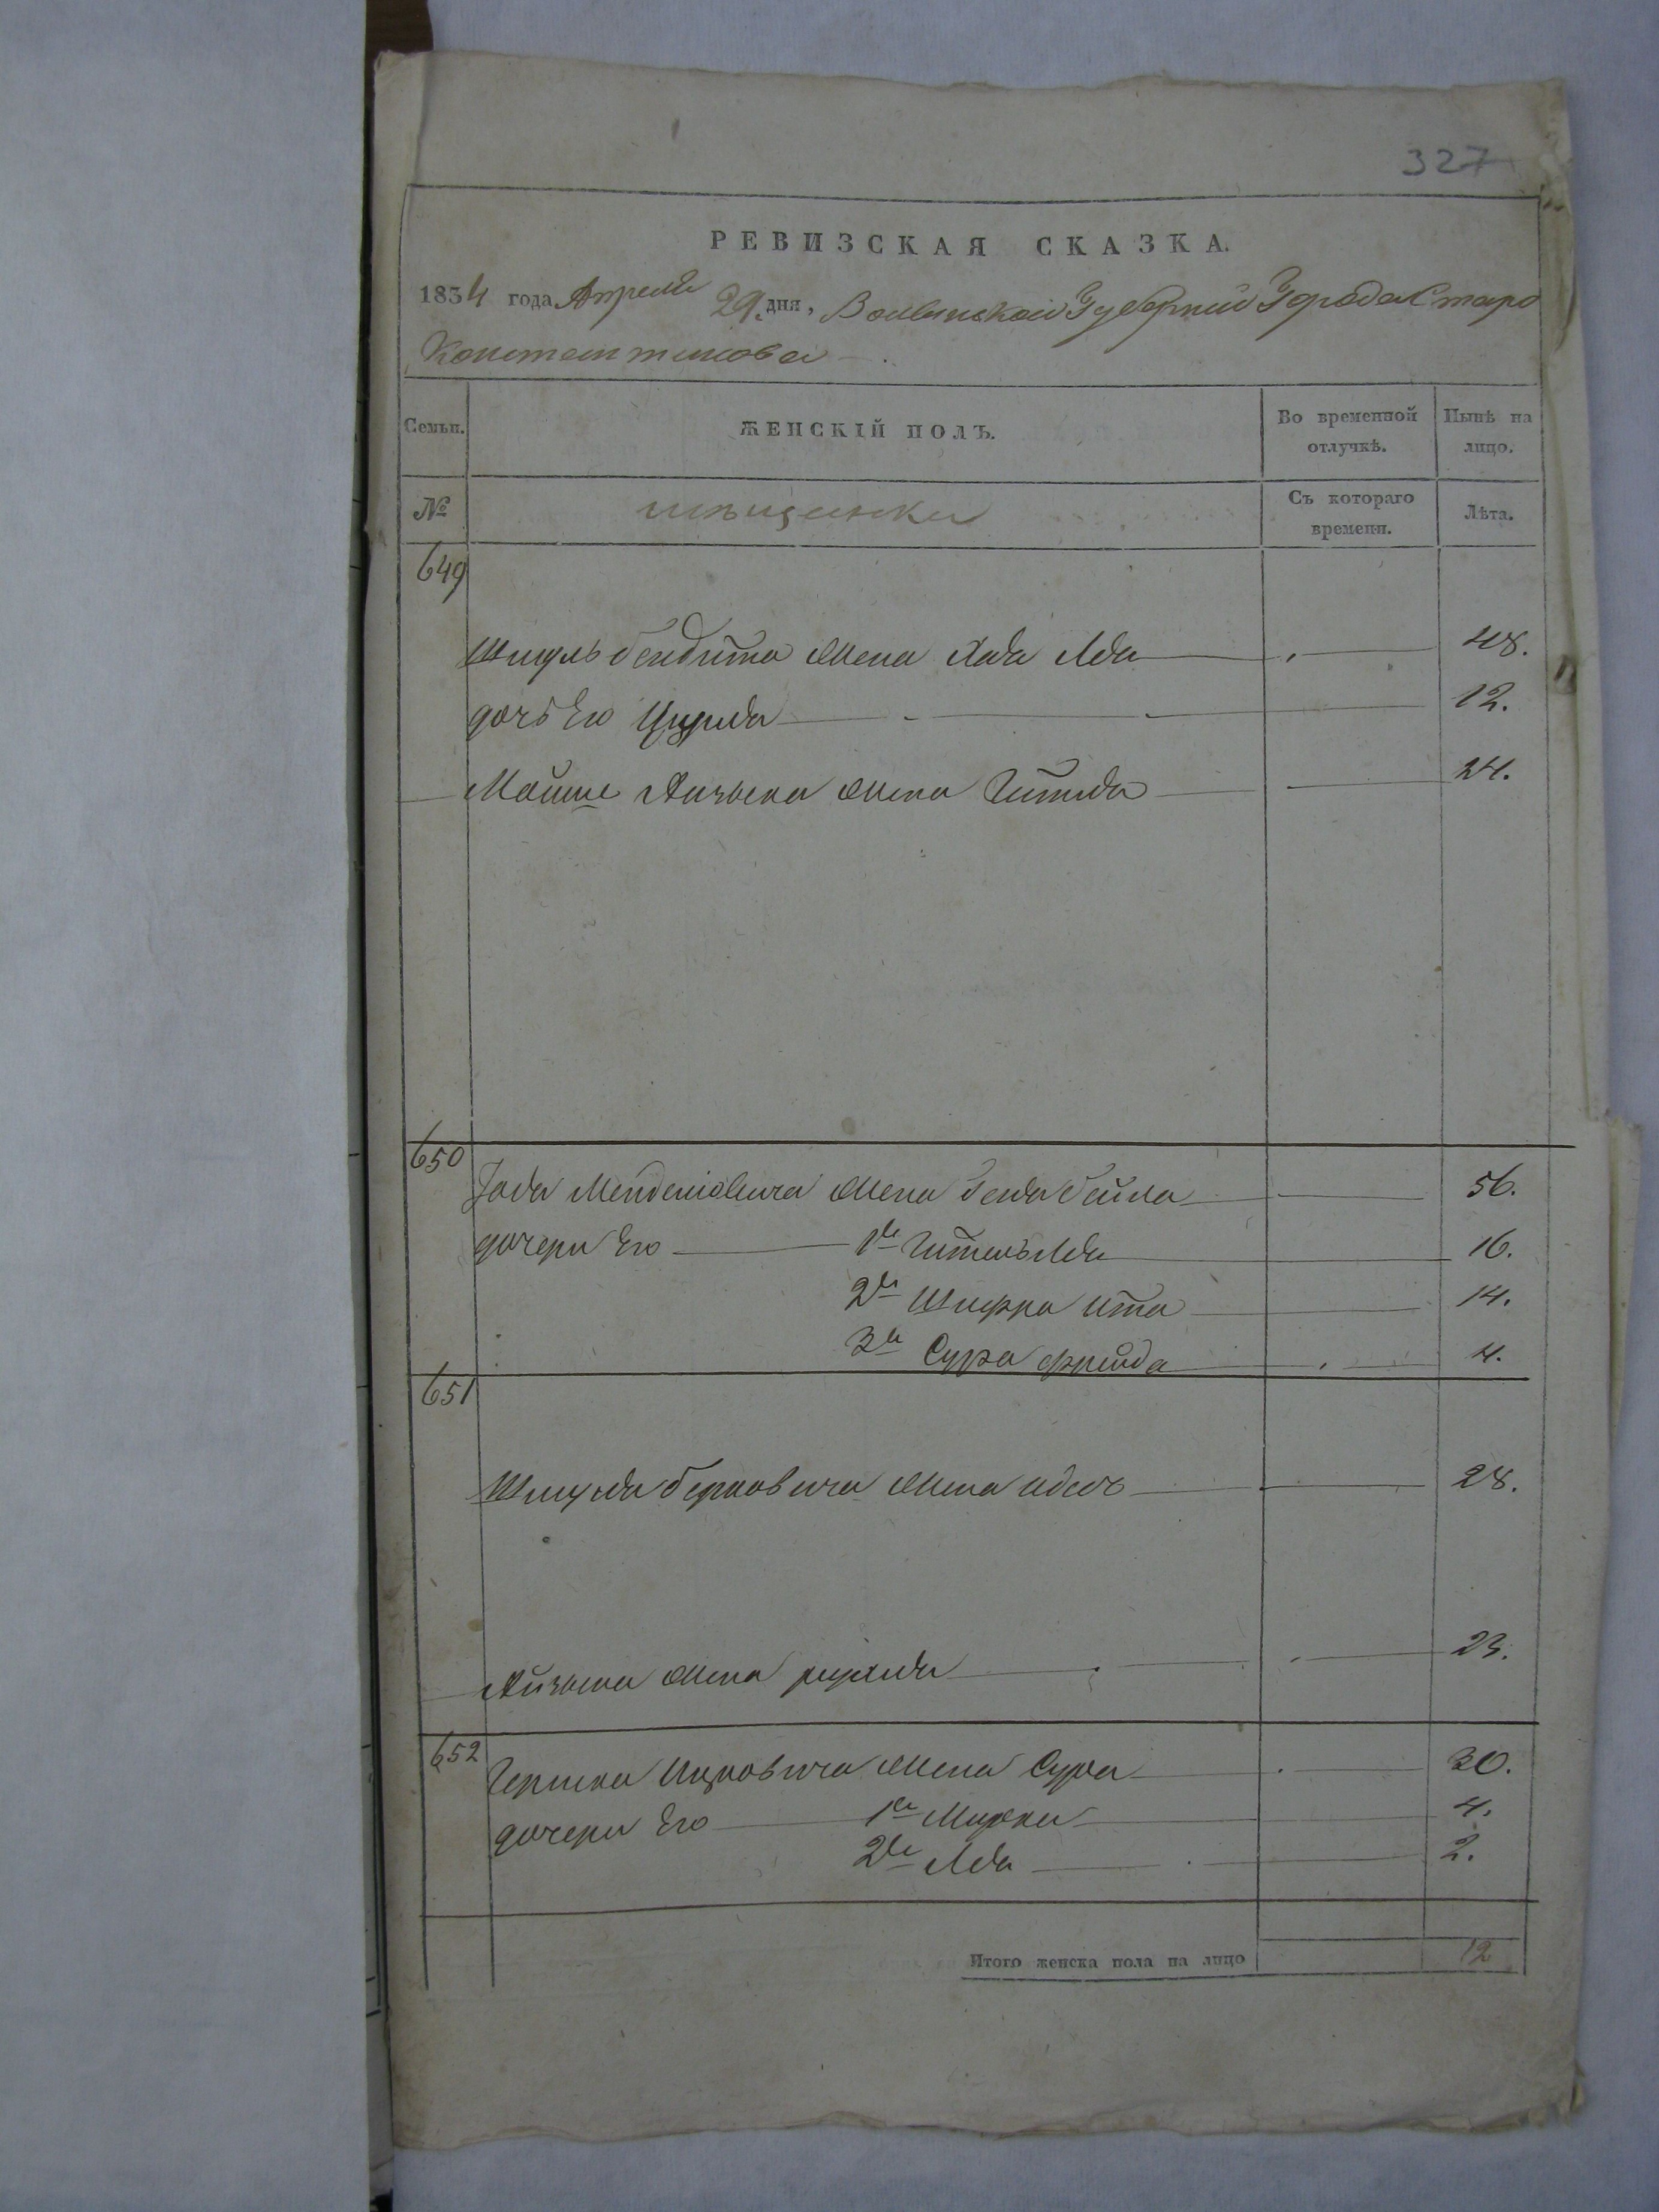 327
РЕВИЗСКАЯ СКАЗКА.
1834 года Апреля 29 дня, Волынской Губернии Города Старо
Константинова
Семьи. ЖЕНСКІЙ ПОЛЪ. Во временной отлучкѣ. Нынѣ на лицо.
№ мѣщанки Съ котораго времени. Лѣта.
649
жена Хая Лея 48.
дочь Его 12.
Мошке жена 24.
650
жена Бейла 56.
дочери Его 1я 16.
2я Шифра Ита 14.
3я Сура фрейда 4.
651
Шмуля Берковича жена 28.
жена рухля 23.
652
Гершка Ицковича жена Сура 30.
дочери Его 1я 4.
2я Лея 2.
Итого женска пола на лицо 12